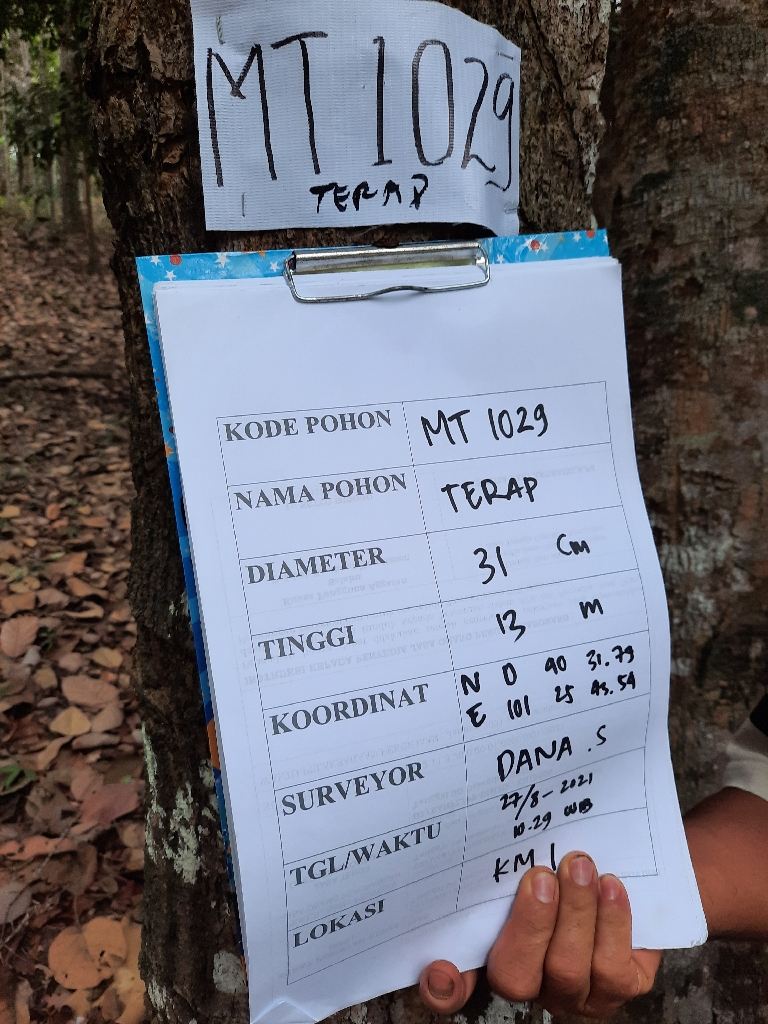 MT 1029
TERAP
KODE POHON MT 1029
NAMA POHON TERAP
DIAMETER 31 Cm
TINGGI 13 m
KOORDINAT N 0 40 31.79
E 101 25 45.54
SURVEYOR DANA .S
TGL/WAKTU 27/8-2021
10.29 WIB
LOKASI KM 1